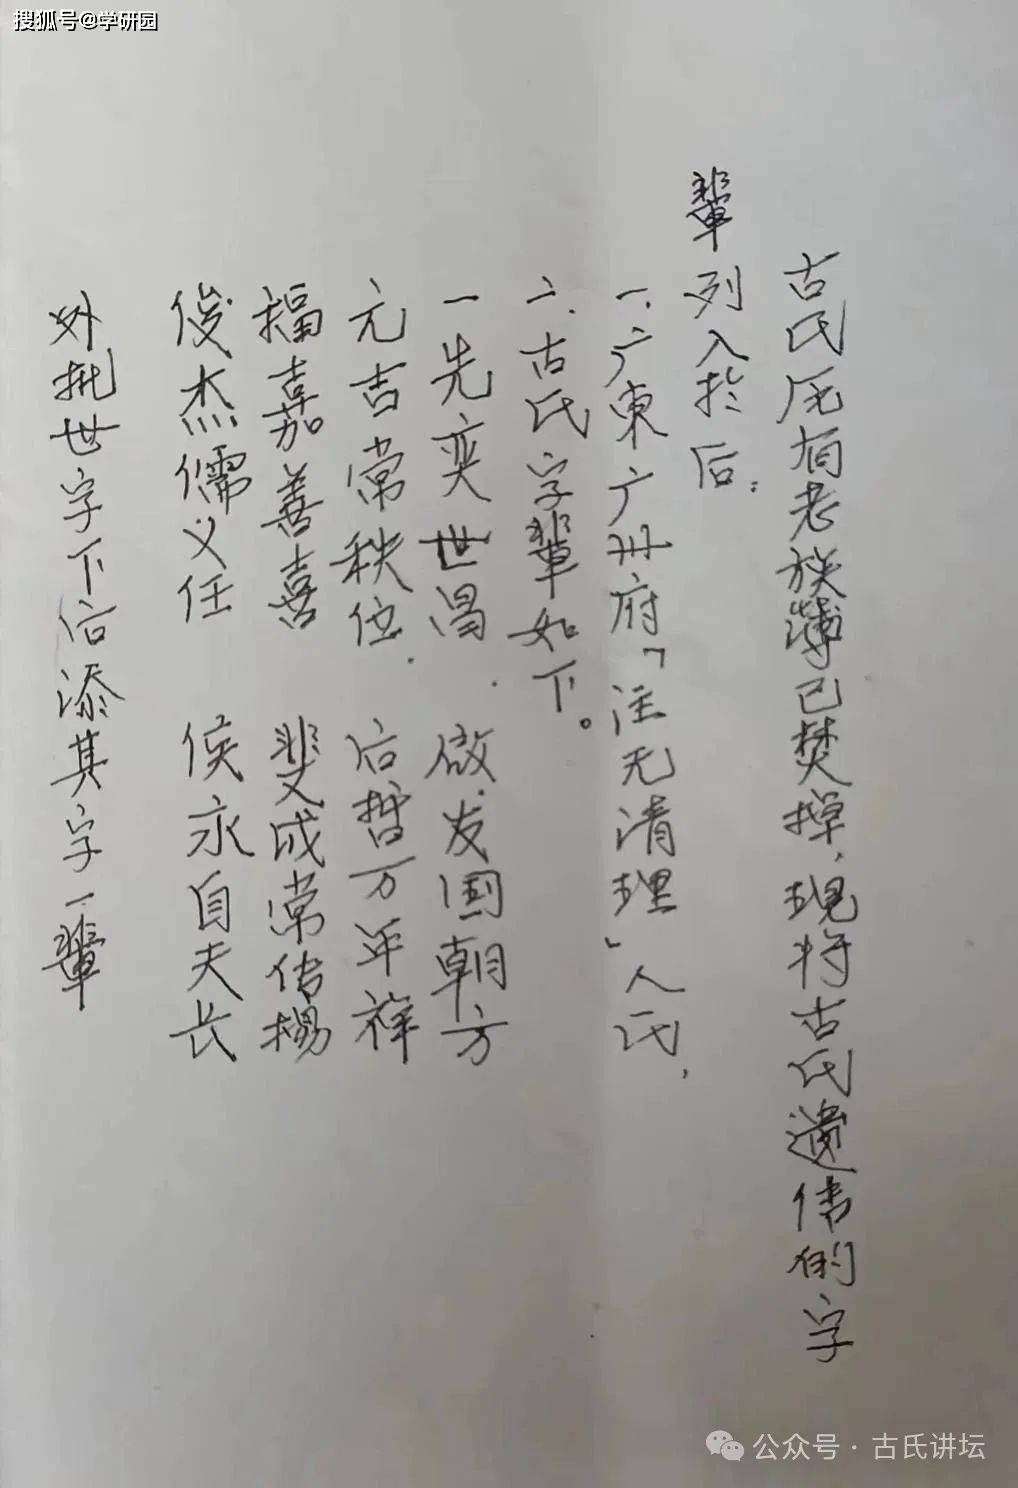 搜狐号@学研园
古氏历有老族薄已焚掉,现将古氏遗传的字
辈列入於后:
一、广東广州府「注无清理」人氏,
二、古氏字辈如下。
一先奕世昌.啟发国朝方
元吉常秩位.后哲万年祥
福嘉善喜 斐成常传揚
俊杰儒义任 侯永自夫长
外批世字下后添其字一辈
公众号·古氏讲坛